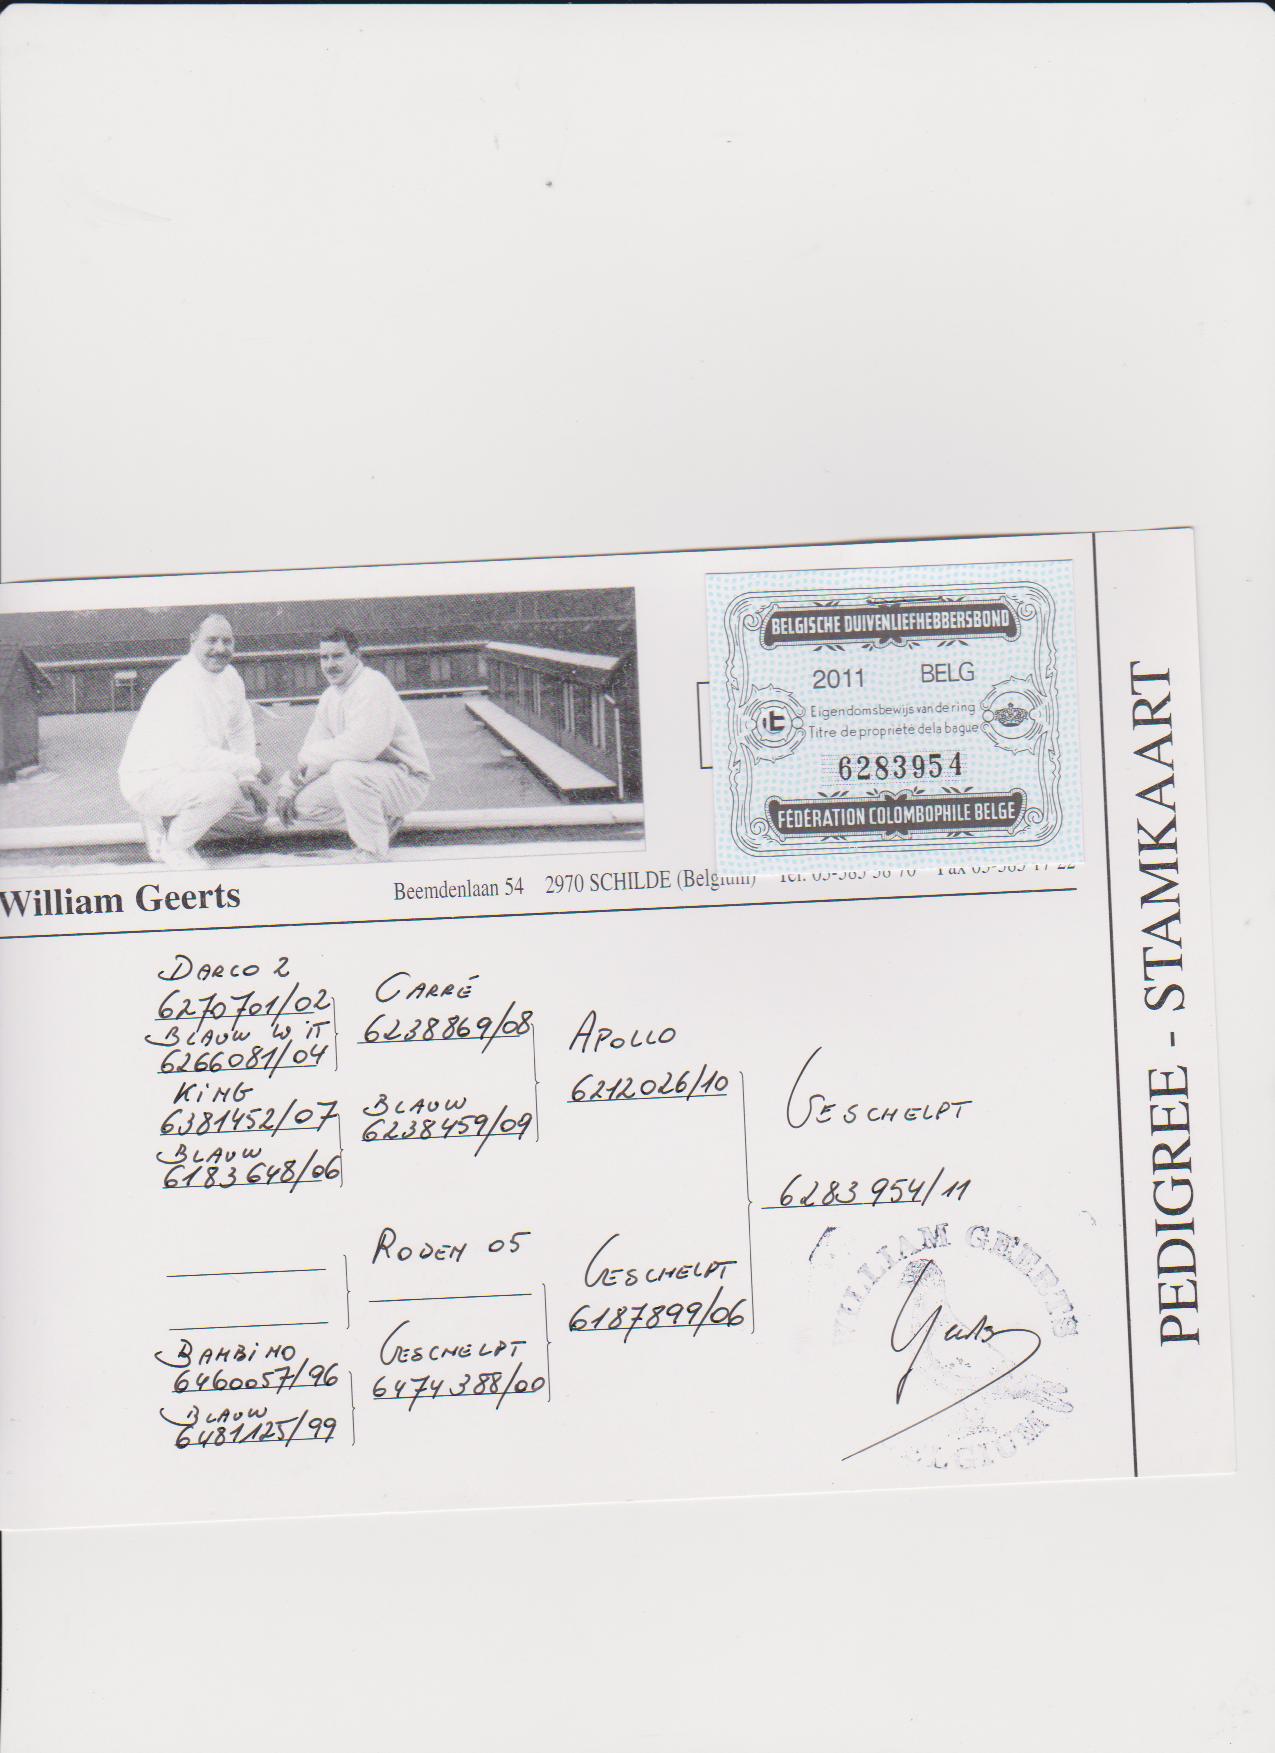 BELGISCHE DUIVENLIEFHEBBERSBOND
2011 BELG
Eigendomsbewijs van de ring
Titre de propriété de la bague
6283954
FÉDÉRATION COLOMBOPHILE BELGE
William Geerts
Beemdenlaan 54 2970 SCHILDE (Belgium)
PEDIGREE - STAMKAART
DARCO 2
6270701/02
BLAUW WIT
6266081/04
KING
6381452/07
BLAUW
6183648/06
CARRÉ
6238869/08
BLAUW
6238459/09
APOLLO
6212026/10
GESCHELPT
6283954/11
RODEN 05
BAMBINO
6460057/96
BLAUW
6481125/99
GESCHELPT
6474388/00
GESCHELPT
6187899/06
WILLIAM GEERTS
BELGIUM